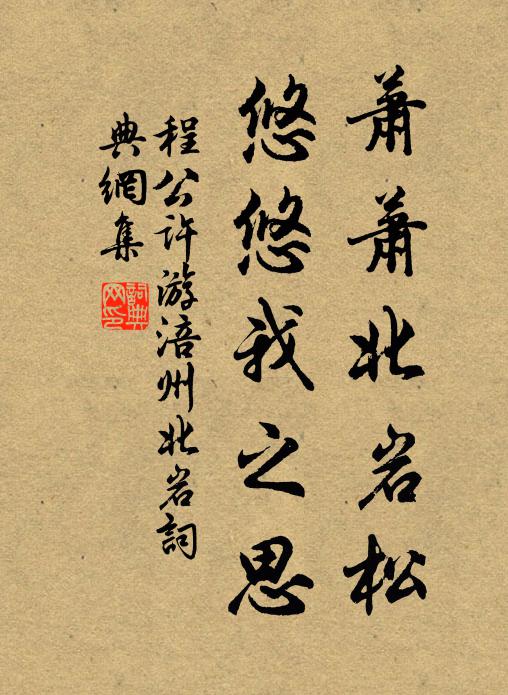 蕭蕭北岩松
悠悠我之思
程公許游涪州北岩詞
典網集
詞典
网印